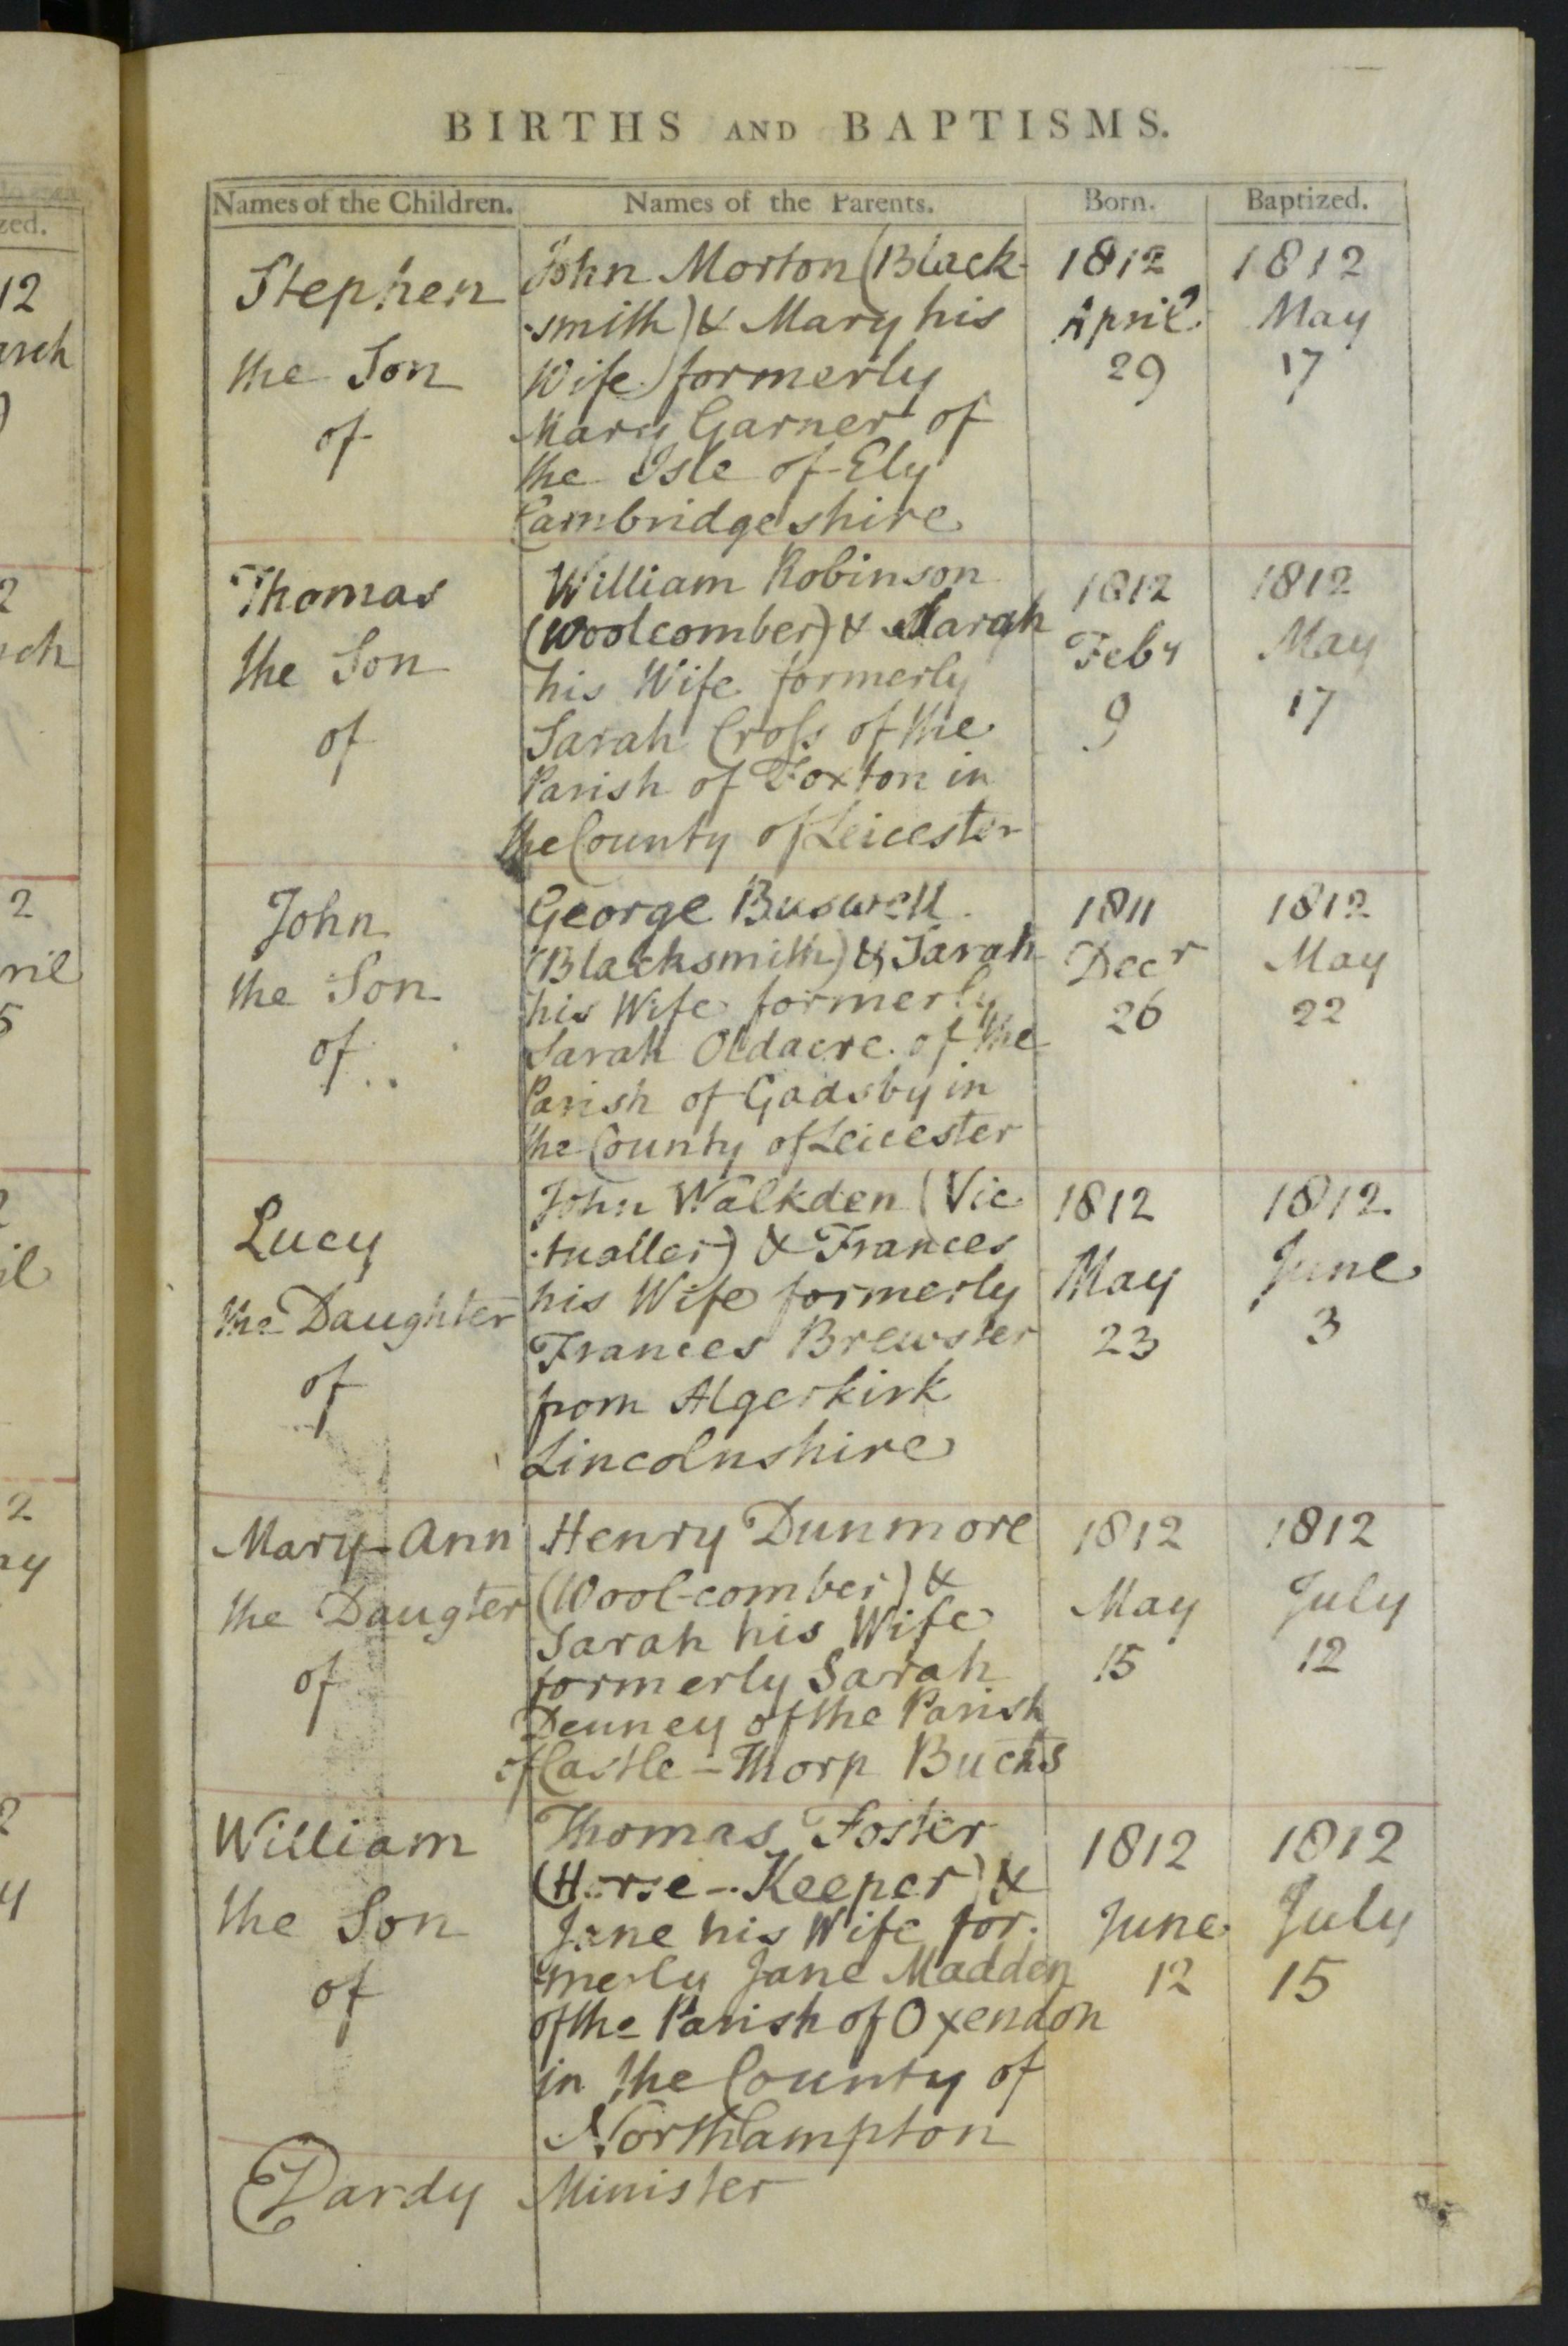 BIRTHS AND BAPTISMS.
Names of the Children. Names of the Parents. Born. Baptized.
Stephen
the Son
of
John Morton (Black-
-smith) & Mary his
Wife formerly
Mary Garner of
the Isle of Ely
Cambridgeshire
1812
April
29
1812
May
17
Thomas
the Son
of
William Robinson
(Woolcomber) & Sarah
his Wife formerly
Sarah Cross of the
Parish of Foxton in
the County of Leicester
1812
Feby
9
1812
May
17
John
the Son
of
George Buswell
(Blacksmith) & Sarah
his Wife formerly
Sarah Oldacre of the
Parish of Gadsby in
the County of Leicester
1811
Decr
26
1812
May
22
Lucy
the Daughter
of
John Walkden (Vic
-tualler) & Frances
his Wife formerly
Frances Brewster
from Algerkirk
Lincolnshire
1812
May
23
1812
June
3
Mary-Ann
the Daugter
of
Henry Dunmore
(Wool-comber) &
Sarah his Wife
formerly Sarah
Denney of the Parish
of Castle-Thorp Bucks
1812
May
15
1812
July
12
William
the Son
of
Thomas Foster
(Horse-Keeper) &
Jane his Wife for-
merly Jane Madden
of the Parish of Oxendon
in the County of
Northampton
1812
June
12
1812
July
15
Minister